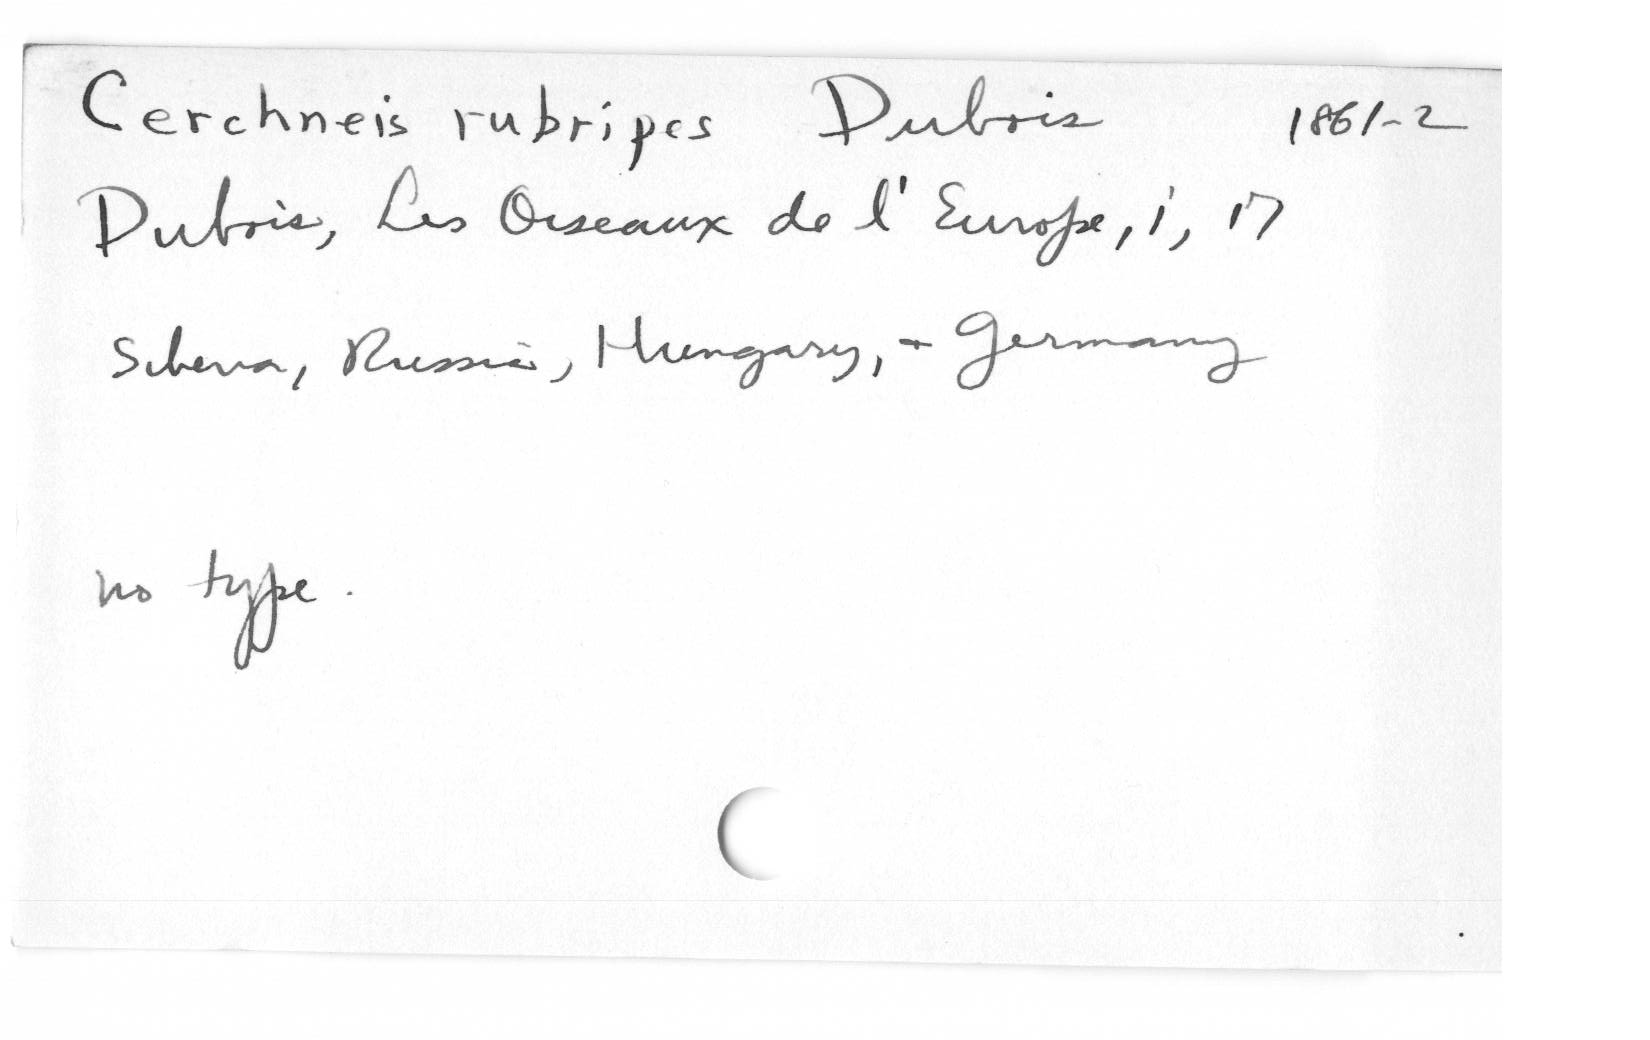 Cerchneis rubripes Dubois 1861-2
Dubois, Les Oiseaux de l'Europe, i, 17
Siberia, Russia, Hungary, + Germany
no type.